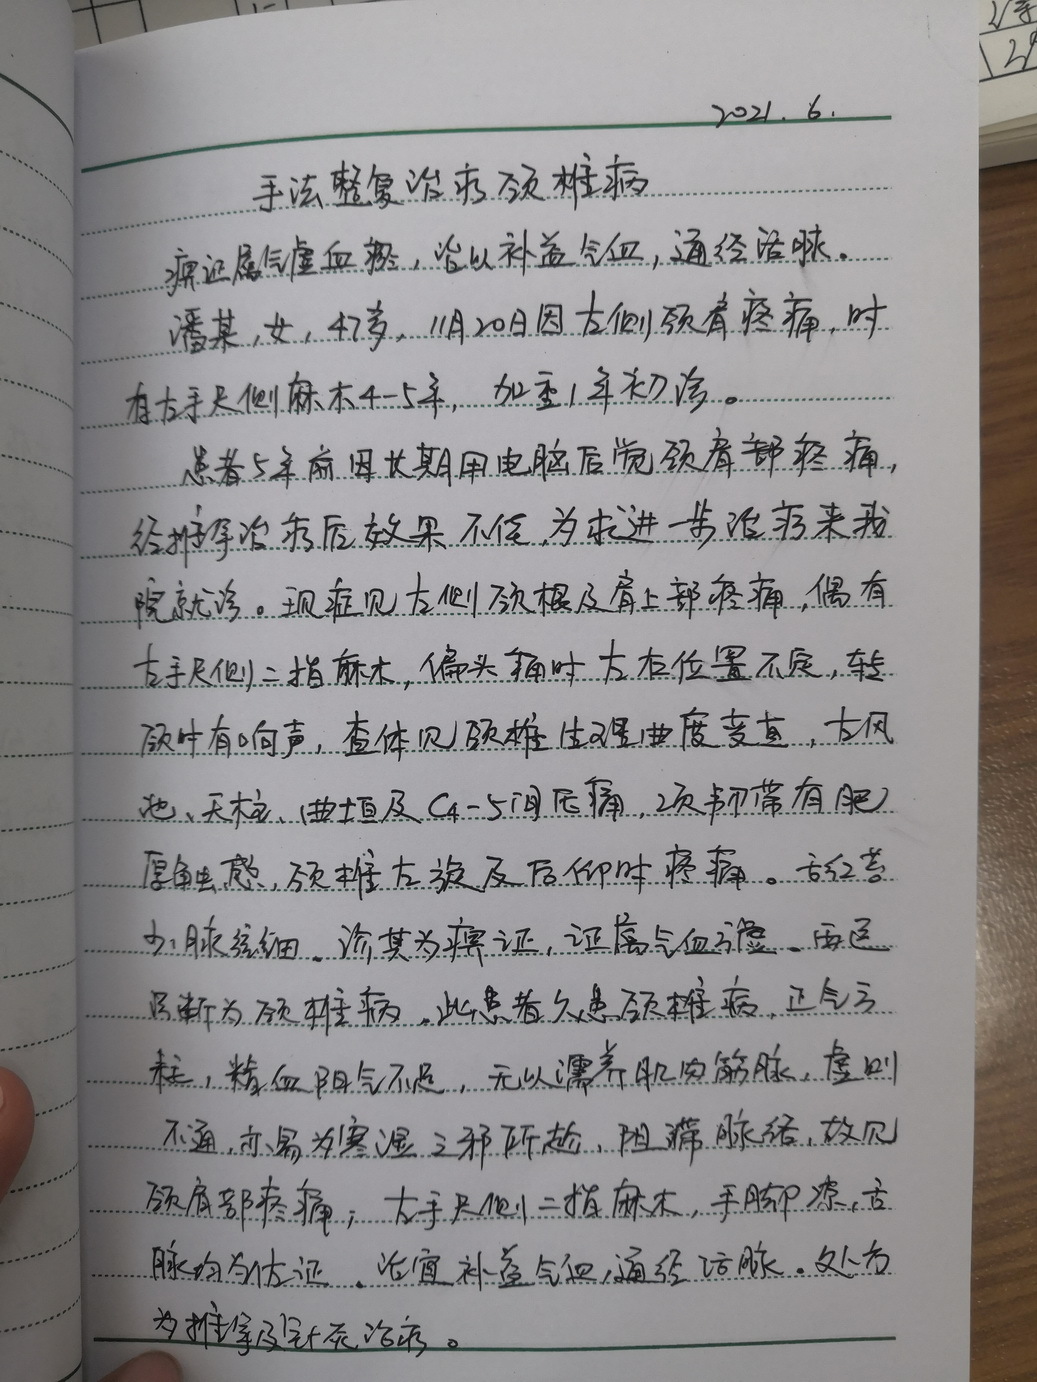 2021.6.
手法整复治疗颈椎病
痹证属气虚血瘀，治以补益气血，通经活脉。
潘某，女，47岁，11月20日因左侧颈肩疼痛，时
有左手尺侧麻木4-5年，加重1年初诊。
患者5年前因长期用电脑后觉颈肩部疼痛，
经推拿治疗后效果不佳，为求进一步治疗来我
院就诊。现症见左侧颈根及肩上部疼痛，偶有
左手尺侧二指麻木，偏头痛时左右位置不定，转
颈时有响声，查体见颈椎生理曲度变直，左风
池、天柱、曲垣及C4-5间压痛，项韧带有肥
厚触感，颈椎左旋及后仰时疼痛。舌红苔
少，脉弦细。诊其为痹证，证属气血亏虚。西医
诊断为颈椎病。此患者久患颈椎病，正气亏
耗，精血阳气不足，无以濡养肌肉筋脉，虚则
不通，亦易为寒湿之邪所趁，阻滞脉络，故见
颈肩部疼痛；左手尺侧二指麻木，手脚凉，舌
脉均为佐证。治宜补益气血，通经活脉。处方
为推拿及针灸治疗。